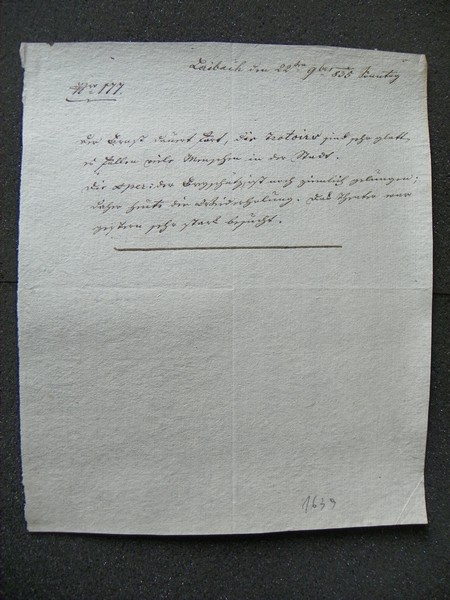 Laibach den 22ten 9ber 835 Sonntag
Nro 177.
Der Frost dauert fort, die Trotoirs sind sehr glatt,
es fallen viele Menschen in der Stadt.
Die Oper: der Bergschütz ist noch ziemlich gelungen;
daher heute die Wiederholung. Das Theater war
gestern sehr stark besucht.
1639